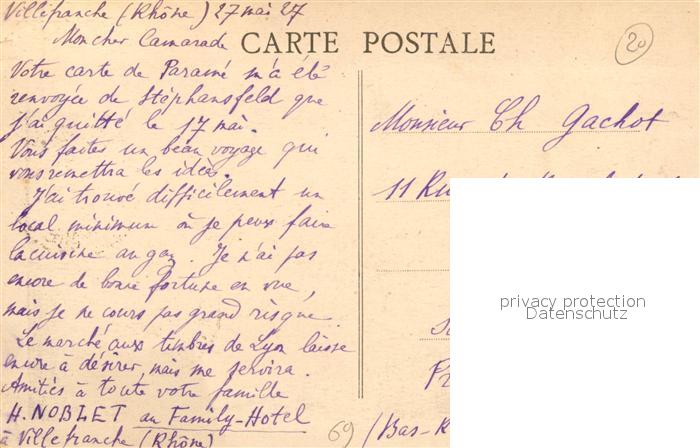 Villefranche (Rhône) 27 mai 27
Mon cher Camarade
CARTE POSTALE
20
Votre carte de Paramé m'a été
renvoyée de Stéphansfeld que
j'ai quitté le 17 mai.
Vous faites un beau voyage qui
vous remettra les idées.
J'ai trouvé difficilement un
local minimum où je peux faire
la cuisine au gaz. Je n'ai pas
encore de bonne fortune en vue,
mais je ne cours pas grand risque.
Le marché aux timbres de Lyon laisse
encore à désirer, mais me servira.
Amitiés à toute votre famille
H. NOBLET au Family-Hotel
à Villefranche (Rhône)
69
Monsieur Ch Gachot
11 Ru
privacy protection
Datenschutz
(Bas-R